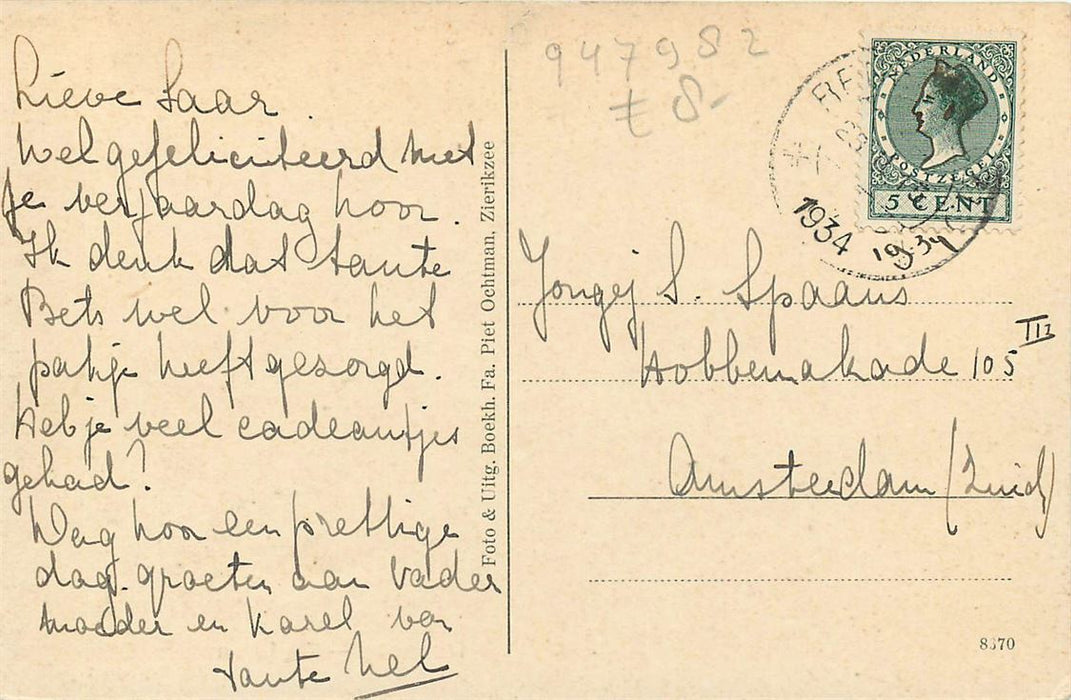 Lieve Saar
Wel gefeliciteerd met
je verjaardag hoor.
Ik denk dat tante
Bets wel voor het
pakje heeft gezorgd.
Heb je veel cadeautjes
gehad?
Dag hoor een prettige
dag. groeten aan Vader
moeder en Karel van
tante Nel
Foto & Uitg. Boekh. Fa. Piet Ochtman, Zierikzee
947982
€ 8-
1934
NEDERLAND
POSTZEGEL
5 CENT
Jongej S. Spaans
Hobbemakade 105 III
Amsterdam (Zuid)
8370